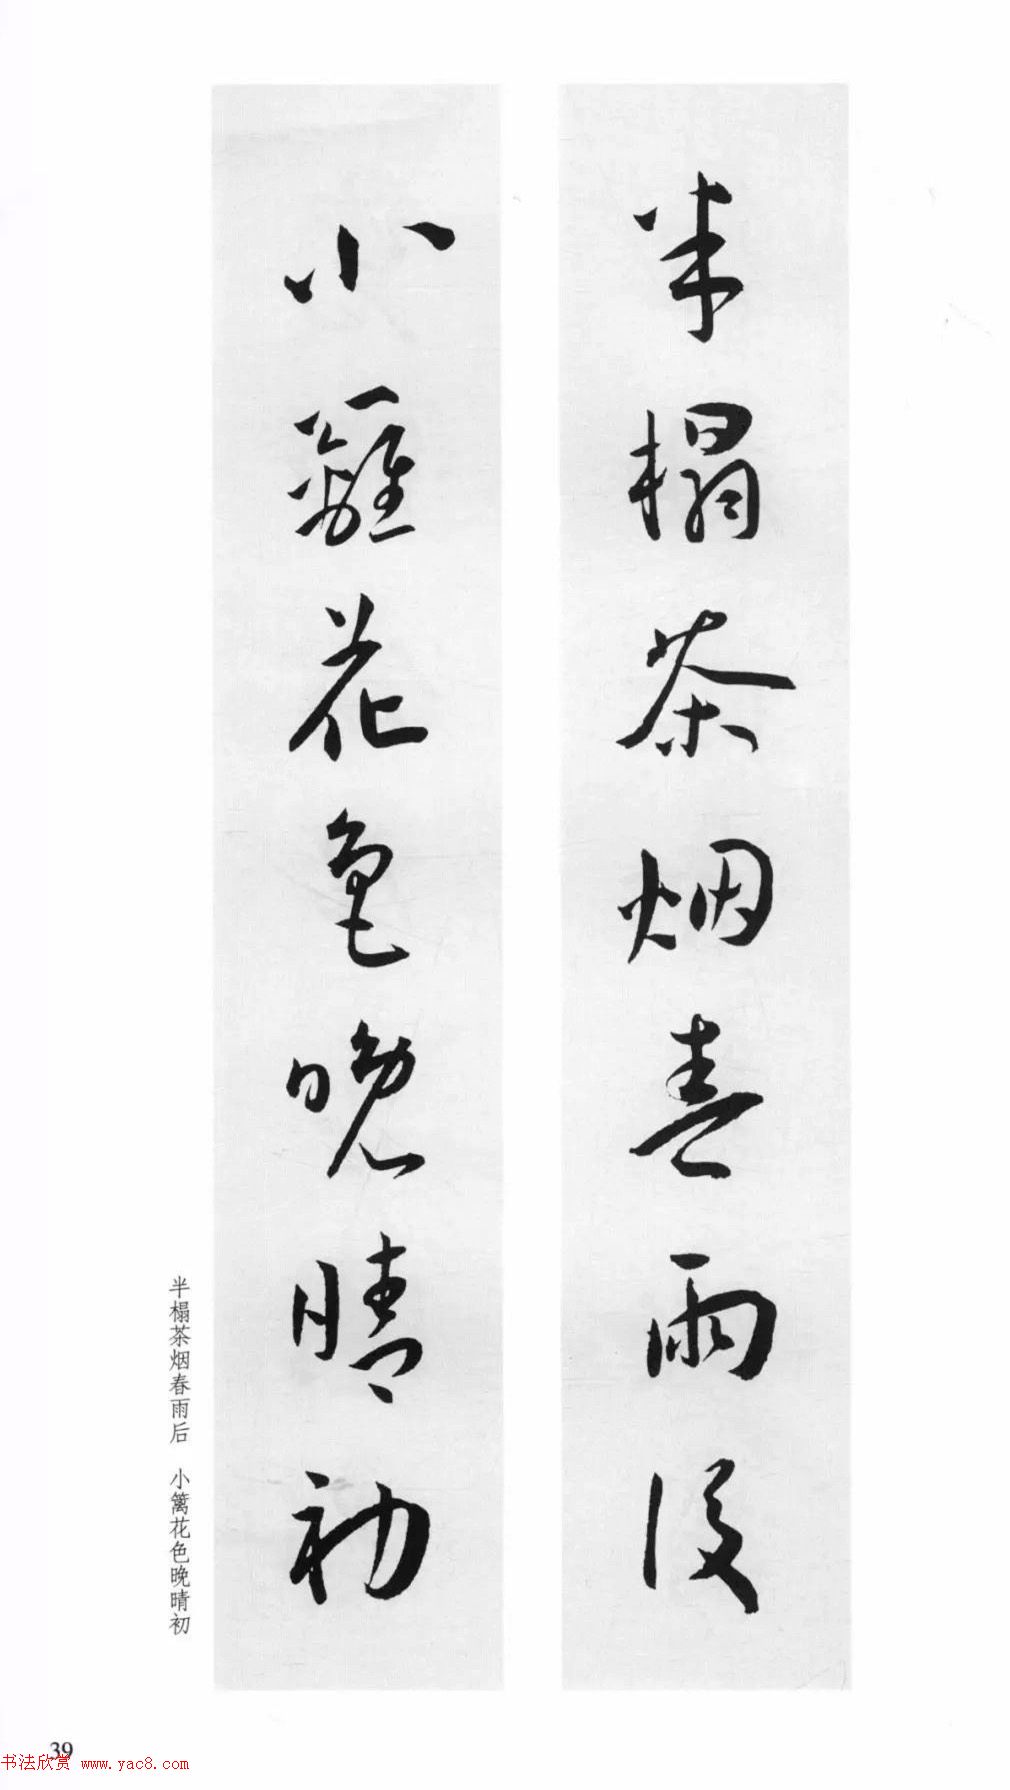 半榻茶烟春雨後
小籬花色晚晴初
半榻茶烟春雨后 小篱花色晚晴初
39
书法欣赏 www.yac8.com